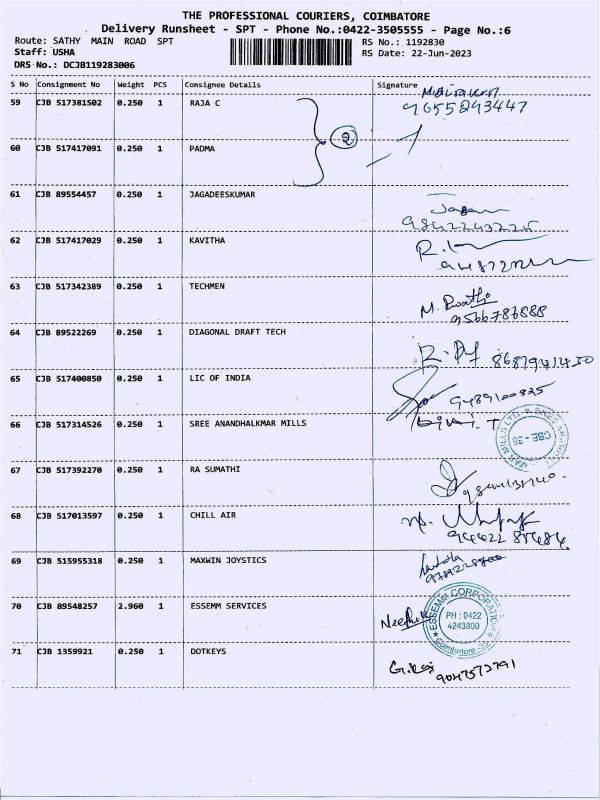 THE PROFESSIONAL COURIERS, COIMBATORE
Delivery Runsheet - SPT - Phone No.:0422-3505555 - Page No.:6
Route: SATHY MAIN ROAD SPT
RS No.: 1192830
Staff: USHA
RS Date: 22-Jun-2023
DRS No.: DCJB119283006
S No Consignment No Weight PCS Consignee Details Signature
59 CJB 517381502 0.250 1 RAJA C
9655293447
2
60 CJB 517417091 0.250 1 PADMA
61 CJB 89554457 0.250 1 JAGADEESKUMAR
62 CJB 517417029 0.250 1 KAVITHA
63 CJB 517342389 0.250 1 TECHMEN
9566786888
64 CJB 89522269 0.250 1 DIAGONAL DRAFT TECH
65 CJB 517400850 0.250 1 LIC OF INDIA
9489100825
66 CJB 517314526 0.250 1 SREE ANANDHALKMAR MILLS
CBE - 35
67 CJB 517392270 0.250 1 RA SUMATHI
68 CJB 517013597 0.250 1 CHILL AIR
69 CJB 515955318 0.250 1 MAXWIN JOYSTICS
70 CJB 89548257 2.960 1 ESSEMM SERVICES
ESSEMM CORPORATION
PH : 0422
4243800
Coimbatore
71 CJB 1359921 0.250 1 DOTKEYS
9047572791